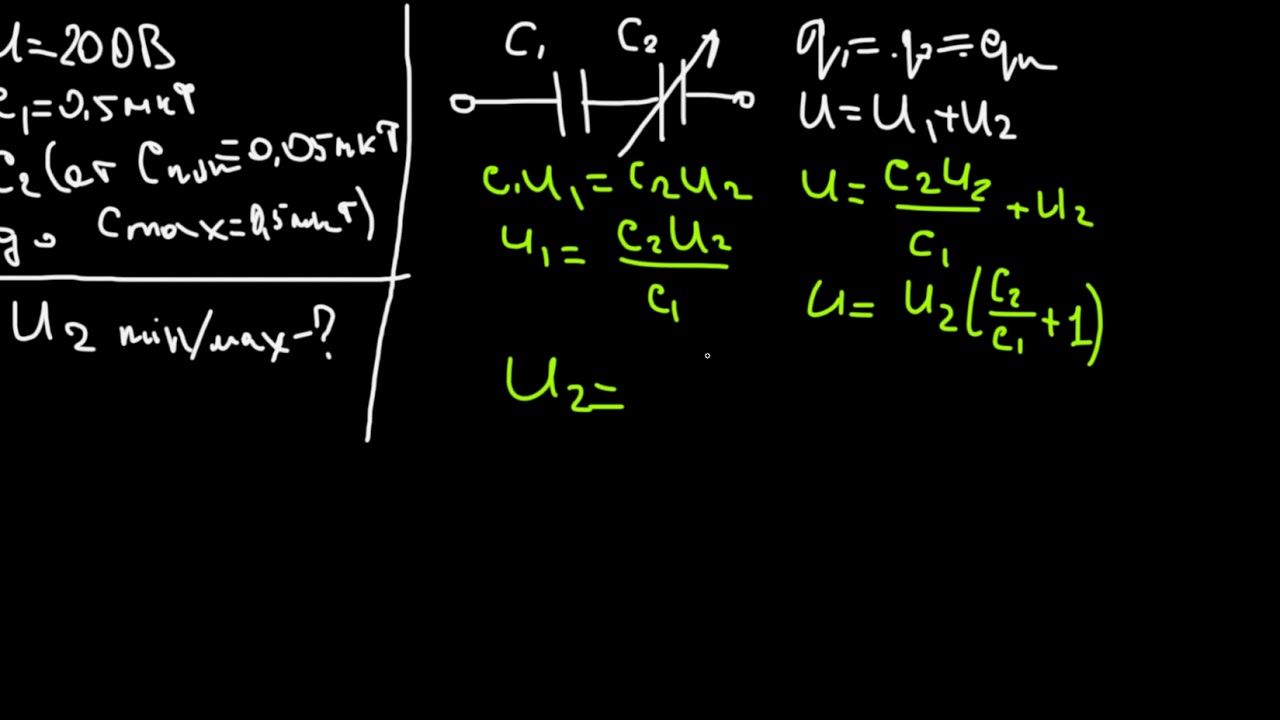 U=200В
C₁=0,5мкФ
C₂ (от Cmin=0,05мкФ
до Cmax=0,5мкФ)
U₂ min/max-?
C₁ C₂
q₁=q₂=qn
U=U₁+U₂
C₁U₁=C₂U₂
U₁=C₂U₂/C₁
U=C₂U₂/C₁+U₂
U=U₂(C₂/C₁+1)
U₂=